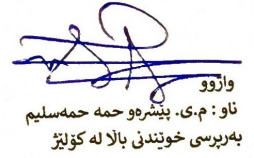 واژوو
ناو : م.ی. پێشرەو حمە حمەسلیم
بەرپرسی خوێندنی باڵا لە کۆلێژ